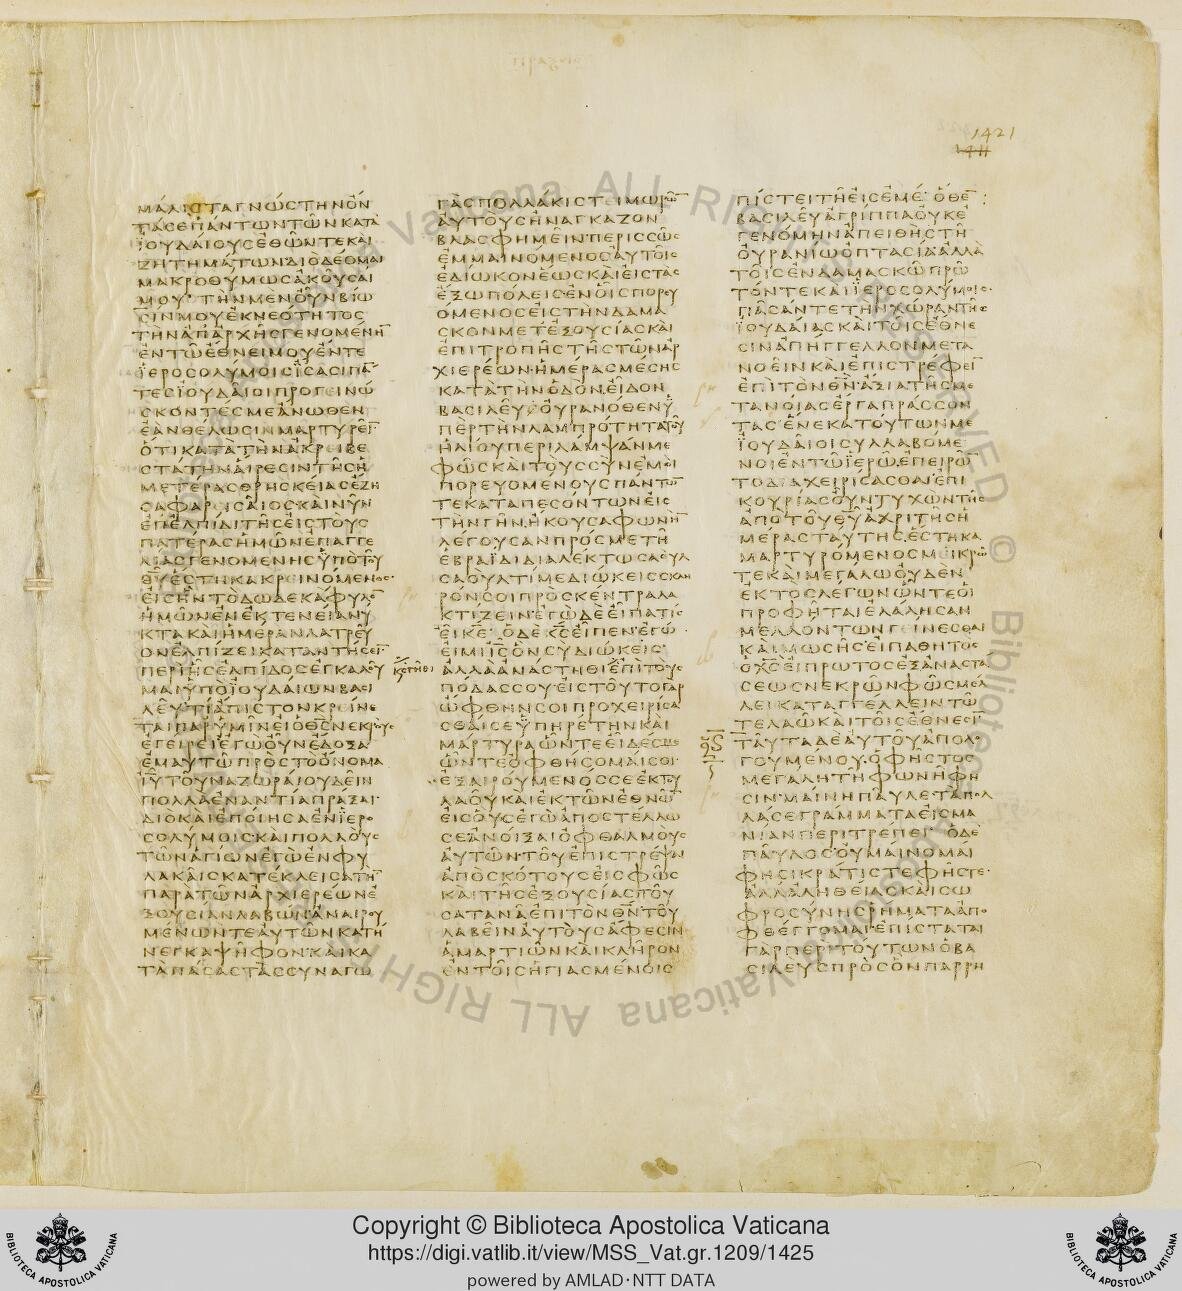 1421
1411
ΜΑΛΙΣΤΑΓΝΩΣΤΗΝΟΝ
ΤΑΣΕΠΑΝΤΩΝΤΩΝΚΑΤΑ
ΙΟΥΔΑΙΟΥΣΕΘΩΝΤΕΚΑΙ
ΖΗΤΗΜΑΤΩΝΔΙΟΔΕΟΜΑΙ
ΜΑΚΡΟΘΥΜΩΣΑΚΟΥΣΑΙ
ΜΟΥ ΤΗΝΜΕΝΟΥΝΒΙΩ
ΣΙΝΜΟΥΕΚΝΕΟΤΗΤΟΣ
ΤΗΝΑΠΑΡΧΗΣΓΕΝΟΜΕΝΗΝ
ΕΝΤΩΕΘΝΕΙΜΟΥΕΝΤΕ
ΙΕΡΟΣΟΛΥΜΟΙΣΙΣΑΣΙΠΑ̅
ΤΕΣΙΟΥΔΑΙΟΙΠΡΟΓΕΙΝΩ
ΣΚΟΝΤΕΣΜΕΑΝΩΘΕΝ
ΕΑΝΘΕΛΩΣΙΝΜΑΡΤΥΡΕΙ̅
ΟΤΙΚΑΤΑΤΗΝΑΚΡΕΙΒΕ
ΣΤΑΤΗΝΑΙΡΕΣΙΝΤΗΣΗ
ΜΕΤΕΡΑΣΘΡΗΣΚΕΙΑΣΕΖΗ
ΣΑΦΑΡΕΙΣΑΙΟΣΚΑΙΝΥΝ
ΕΠΕΛΠΙΔΙΤΗΣΕΙΣΤΟΥΣ
ΠΑΤΕΡΑΣΗΜΩΝΕΠΑΓΓΕ
ΛΙΑΣΓΕΝΟΜΕΝΗΣΥΠΟΤΟΥ
ΘΥ̅ΕΣΤΗΚΑΚΡΕΙΝΟΜΕΝΟΣ
ΕΙΣΗΝΤΟΔΩΔΕΚΑΦΥΛΟ̅
ΗΜΩΝΕΝΕΚΤΕΝΕΙΑΝΥ
ΚΤΑΚΑΙΗΜΕΡΑΝΛΑΤΡΕΥ
ΟΝΕΛΠΙΖΕΙΚΑΤΑΝΤΗΣΕΙ̅
ΠΕΡΙΗΣΕΛΠΙΔΟΣΕΓΚΑΛΟΥ
ΜΑΙΥΠΟΙΟΥΔΑΙΩΝΒΑΣΙ
ΛΕΥΤΙΑΠΙΣΤΟΝΚΡΕΙΝΕ
ΤΑΙΠΑΡΥΜΙΝΕΙΟΘΣ̅ΝΕΚΡΟΥΣ
ΕΓΕΙΡΕΙΕΓΩΟΥΝΕΔΟΞΑ
ΕΜΑΥΤΩΠΡΟΣΤΟΟΝΟΜΑ
ΙΥ̅ΤΟΥΝΑΖΩΡΑΙΟΥΔΕΙΝ
ΠΟΛΛΑΕΝΑΝΤΙΑΠΡΑΞΑΙ
ΔΙΟΚΑΙΕΠΟΙΗΣΑΕΝΙΕΡΟ
ΣΟΛΥΜΟΙΣΚΑΙΠΟΛΛΟΥΣ
ΤΩΝΑΓΙΩΝΕΓΩΕΝΦΥ
ΛΑΚΑΙΣΚΑΤΕΚΛΕΙΣΑΤΗ̅
ΠΑΡΑΤΩΝΑΡΧΙΕΡΕΩΝΕ
ΞΟΥΣΙΑΝΛΑΒΩΝΑΝΑΙΡΟΥ
ΜΕΝΩΝΤΕΑΥΤΩΝΚΑΤΗ
ΝΕΓΚΑΨΗΦΟΝΚΑΙΚΑ
ΤΑΠΑΣΑΣΤΑΣΣΥΝΑΓΩ
ΓΑΣΠΟΛΛΑΚΙΣΤΕΙΜΩΡΩ̅
ΑΥΤΟΥΣΗΝΑΓΚΑΖΟΝ
ΒΛΑΣΦΗΜΕΙΝΠΕΡΙΣΣΩΣ
ΕΜΜΑΙΝΟΜΕΝΟΣΑΥΤΟΙΣ
ΕΔΙΩΚΟΝΕΩΣΚΑΙΕΙΣΤΑΣ
ΕΞΩΠΟΛΕΙΣΕΝΟΙΣΠΟΡΕΥ
ΟΜΕΝΟΣΕΙΣΤΗΝΔΑΜΑ
ΣΚΟΝΜΕΤΕΞΟΥΣΙΑΣΚΑΙ
ΕΠΙΤΡΟΠΗΣΤΗΣΤΩΝΑΡ
ΧΙΕΡΕΩΝΗΜΕΡΑΣΜΕΣΗΣ
ΚΑΤΑΤΗΝΟΔΟΝΕΙΔΟΝ
ΒΑΣΙΛΕΥΟΥΡΑΝΟΘΕΝΥ
ΠΕΡΤΗΝΛΑΜΠΡΟΤΗΤΑΤΟΥ
ΗΛΙΟΥΠΕΡΙΛΑΜΨΑΝΜΕ
ΦΩΣΚΑΙΤΟΥΣΣΥΝΕΜΟΙ
ΠΟΡΕΥΟΜΕΝΟΥΣΠΑΝΤΩ̅
ΤΕΚΑΤΑΠΕΣΟΝΤΩΝΕΙΣ
ΤΗΝΓΗΝΗΚΟΥΣΑΦΩΝΗ̅
ΛΕΓΟΥΣΑΝΠΡΟΣΜΕΤΗ
ΕΒΡΑΙΔΙΔΙΑΛΕΚΤΩΣΑΟΥΛ
ΣΑΟΥΛΤΙΜΕΔΙΩΚΕΙΣΣΚΛΗ
ΡΟΝΣΟΙΠΡΟΣΚΕΝΤΡΑΛΑ
ΚΤΙΖΕΙΝΕΓΩΔΕΕΙΠΑΤΙΣ
ΕΙΚΕ ΟΔΕΚΣ̅ΕΙΠΕΝΕΓΩ
ΕΙΜΙΙΣ̅ΟΝΣΥΔΙΩΚΕΙΣ
ΑΛΛΑΑΝΑΣΤΗΘΙΕΠΙΤΟΥΣ
ΠΟΔΑΣΣΟΥΕΙΣΤΟΥΤΟΓΑΡ
ΩΦΘΗΝΣΟΙΠΡΟΧΕΙΡΙΣΑ
ΣΘΑΙΣΕΥΠΗΡΕΤΗΝΚΑΙ
ΜΑΡΤΥΡΑΩΝΤΕΕΙΔΕΣΜΕ
ΩΝΤΕΟΦΘΗΣΟΜΑΙΣΟΙ
ΕΞΑΙΡΟΥΜΕΝΟΣΣΕΕΚΤΟΥ
ΛΑΟΥΚΑΙΕΚΤΩΝΕΘΝΩ̅
ΕΙΣΟΥΣΕΓΩΑΠΟΣΤΕΛΛΩ
ΣΕΑΝΟΙΞΑΙΟΦΘΑΛΜΟΥΣ
ΑΥΤΩΝΤΟΥΕΠΙΣΤΡΕΨΑΙ
ΑΠΟΣΚΟΤΟΥΣΕΙΣΦΩΣ
ΚΑΙΤΗΣΕΞΟΥΣΙΑΣΤΟΥ
ΣΑΤΑΝΑΕΠΙΤΟΝΘΝ̅ΤΟΥ
ΛΑΒΕΙΝΑΥΤΟΥΣΑΦΕΣΙΝ
ΑΜΑΡΤΙΩΝΚΑΙΚΛΗΡΟΝ
ΕΝΤΟΙΣΗΓΙΑΣΜΕΝΟΙΣ
ΠΙΣΤΕΙΤΗΕΙΣΕΜΕ ΟΘΕ̅
ΒΑΣΙΛΕΥΑΓΡΙΠΠΑΟΥΚΕ
ΓΕΝΟΜΗΝΑΠΕΙΘΗΣΤΗ
ΟΥΡΑΝΙΩΟΠΤΑΣΙΑΑΛΛΑ
ΤΟΙΣΕΝΔΑΜΑΣΚΩΠΡΩ
ΤΟΝΤΕΚΑΙΙΕΡΟΣΟΛΥΜΟΙΣ
ΠΑΣΑΝΤΕΤΗΝΧΩΡΑΝΤΗΣ
ΙΟΥΔΑΙΑΣΚΑΙΤΟΙΣΕΘΝΕ
ΣΙΝΑΠΗΓΓΕΛΛΟΝΜΕΤΑ
ΝΟΕΙΝΚΑΙΕΠΙΣΤΡΕΦΕΙ̅
ΕΠΙΤΟΝΘΝ̅ΑΞΙΑΤΗΣΜΕ
ΤΑΝΟΙΑΣΕΡΓΑΠΡΑΣΣΟΝ
ΤΑΣΕΝΕΚΑΤΟΥΤΩΝΜΕ
ΙΟΥΔΑΙΟΙΣΥΛΛΑΒΟΜΕ
ΝΟΙΕΝΤΩΙΕΡΩΕΠΕΙΡΩ̅
ΤΟΔΙΑΧΕΙΡΙΣΑΣΘΑΙΕΠΙ
ΚΟΥΡΙΑΣΟΥΝΤΥΧΩΝΤΗΣ
ΑΠΟΤΟΥΘΥ̅ΑΧΡΙΤΗΣΗ
ΜΕΡΑΣΤΑΥΤΗΣΕΣΤΗΚΑ
ΜΑΡΤΥΡΟΜΕΝΟΣΜΕΙΚΡΩ
ΤΕΚΑΙΜΕΓΑΛΩΟΥΔΕΝ
ΕΚΤΟΣΛΕΓΩΝΩΝΤΕΟΙ
ΠΡΟΦΗΤΑΙΕΛΑΛΗΣΑΝ
ΜΕΛΛΟΝΤΩΝΓΕΙΝΕΣΘΑΙ
ΚΑΙΜΩΣΗΣΕΙΠΑΘΗΤΟΣ
ΟΧΣ̅ΕΙΠΡΩΤΟΣΕΞΑΝΑΣΤΑ
ΣΕΩΣΝΕΚΡΩΝΦΩΣΜΕΛ
ΛΕΙΚΑΤΑΓΓΕΛΛΕΙΝΤΩ
ΤΕΛΑΩΚΑΙΤΟΙΣΕΘΝΕΣΙ̅
ΤΑΥΤΑΔΕΑΥΤΟΥΑΠΟΛΟ
ΓΟΥΜΕΝΟΥΟΦΗΣΤΟΣ
ΜΕΓΑΛΗΤΗΦΩΝΗΦΗ
ΣΙΝΜΑΙΝΗΠΑΥΛΕΤΑΠΟΛ
ΛΑΣΕΓΡΑΜΜΑΤΑΕΙΣΜΑ
ΝΙΑΝΠΕΡΙΤΡΕΠΕΙ ΟΔΕ
ΠΑΥΛΟΣΟΥΜΑΙΝΟΜΑΙ
ΦΗΣΙΚΡΑΤΙΣΤΕΦΗΣΤΕ
ΑΛΛΑΑΛΗΘΕΙΑΣΚΑΙΣΩ
ΦΡΟΣΥΝΗΣΡΗΜΑΤΑΑΠΟ
ΦΘΕΓΓΟΜΑΙΕΠΙΣΤΑΤΑΙ
ΓΑΡΠΕΡΙΤΟΥΤΩΝΟΒΑ
ΣΙΛΕΥΣΠΡΟΣΟΝΠΑΡΡΗ
Copyright © Biblioteca Apostolica Vaticana
https://digi.vatlib.it/view/MSS_Vat.gr.1209/1425
powered by AMLAD·NTT DATA